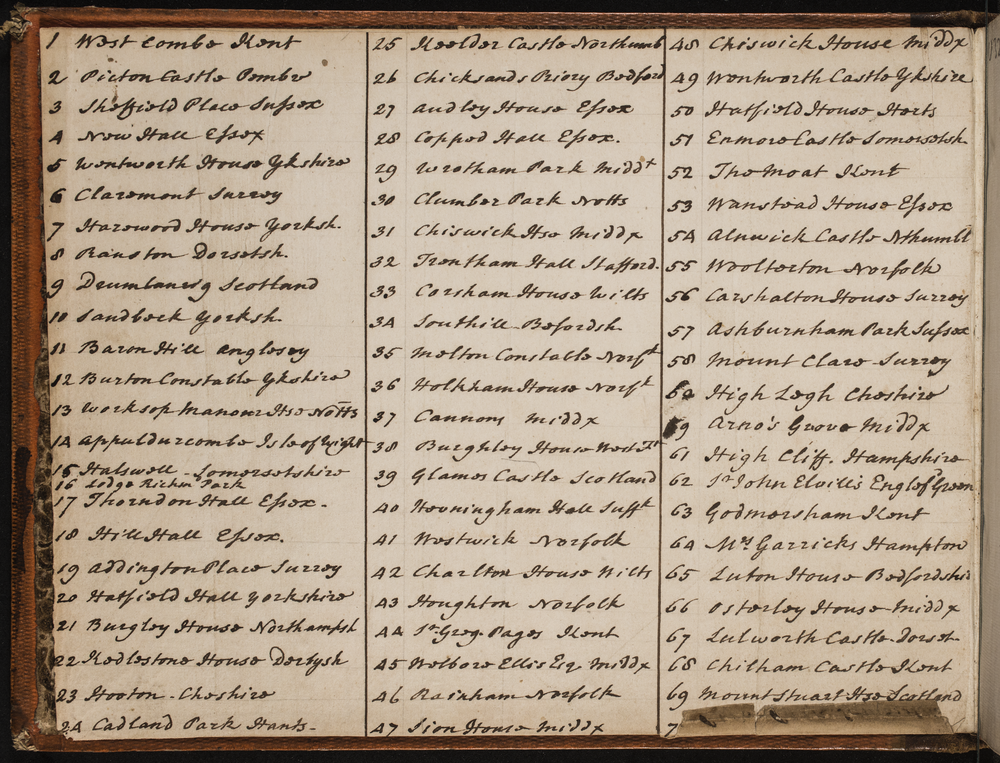 1 West Combe Kent
2 Picton Castle Pembr
3 Sheffield Place Sussex
4 New Hall Essex
5 Wentworth House Ykshire
6 Claremont Surrey
7 Harewood House Yorksh.
8 Ranston Dorsetsh.
9 Drumlanrig Scotland
10 Sandbeck Yorksh
11 Baron Hill Anglesey
12 Burton Constable Ykshire
13 Worksop Manour Hse Notts
14 Appuldurcombe Isle of Wight
15 Halswell - Somersetshire
16 Lodge Richm Park
17 Thorndon Hall Essex -
18 Hill Hall Essex.
19 Addington Place Surrey
20 Hatfield Hall Yorkshire
21 Burgley House Northampsh
22 Kedlestone House Derbysh
23 Hooton - Cheshire
24 Cadland Park Hants -
25 Keelder Castle Northumb
26 Chicksands Priory Bedford
27 Audley House Essex
28 Copped Hall Essex.
29 Wrotham Park Middx
30 Clumber Park Notts
31 Chiswick Hse Middx
32 Trentham Hall Stafford.
33 Corsham House Wilts
34 Southill Befordsh
35 Melton Constable Norfk
36 Holkham House Norfk
37 Cannons Middx
38 Burghley House
39 Glames Castle Scotland
40 Hevningham Hall Suffk
41 Westwick Norfolk
42 Charlton House Wilts
43 Houghton Norfolk
44 Sr. Greg. Pages Kent
45 Welbore Ellis Esq Middx
46 Rainham Norfolk
47 Sion House Middx
48 Chiswick House Middx
49 Wentworth Castle Ykshire
50 Hatfield House Herts
51 Enmore Castle Somersetsh
52 The Moat Kent
53 Wanstead House Essex
54 Alnwick Castle Nthumbl
55 Woolterton Norfolk
56 Carshalton House Surrey
57 Ashburnham Park Sussex
58 Mount Clare Surrey
60 High Legh Cheshire
59 Arno's Grove Middx
61 High Cliff. Hampshire
62 Sr John Elvills Englef Green
63 Godmersham Kent
64 Mrs Garricks Hampton
65 Luton House Bedfordshi
66 Osterley House Middx
67 Lulworth Castle Dorset
68 Chilham Castle Kent
69 Mount Stuart Hse Scotland
7